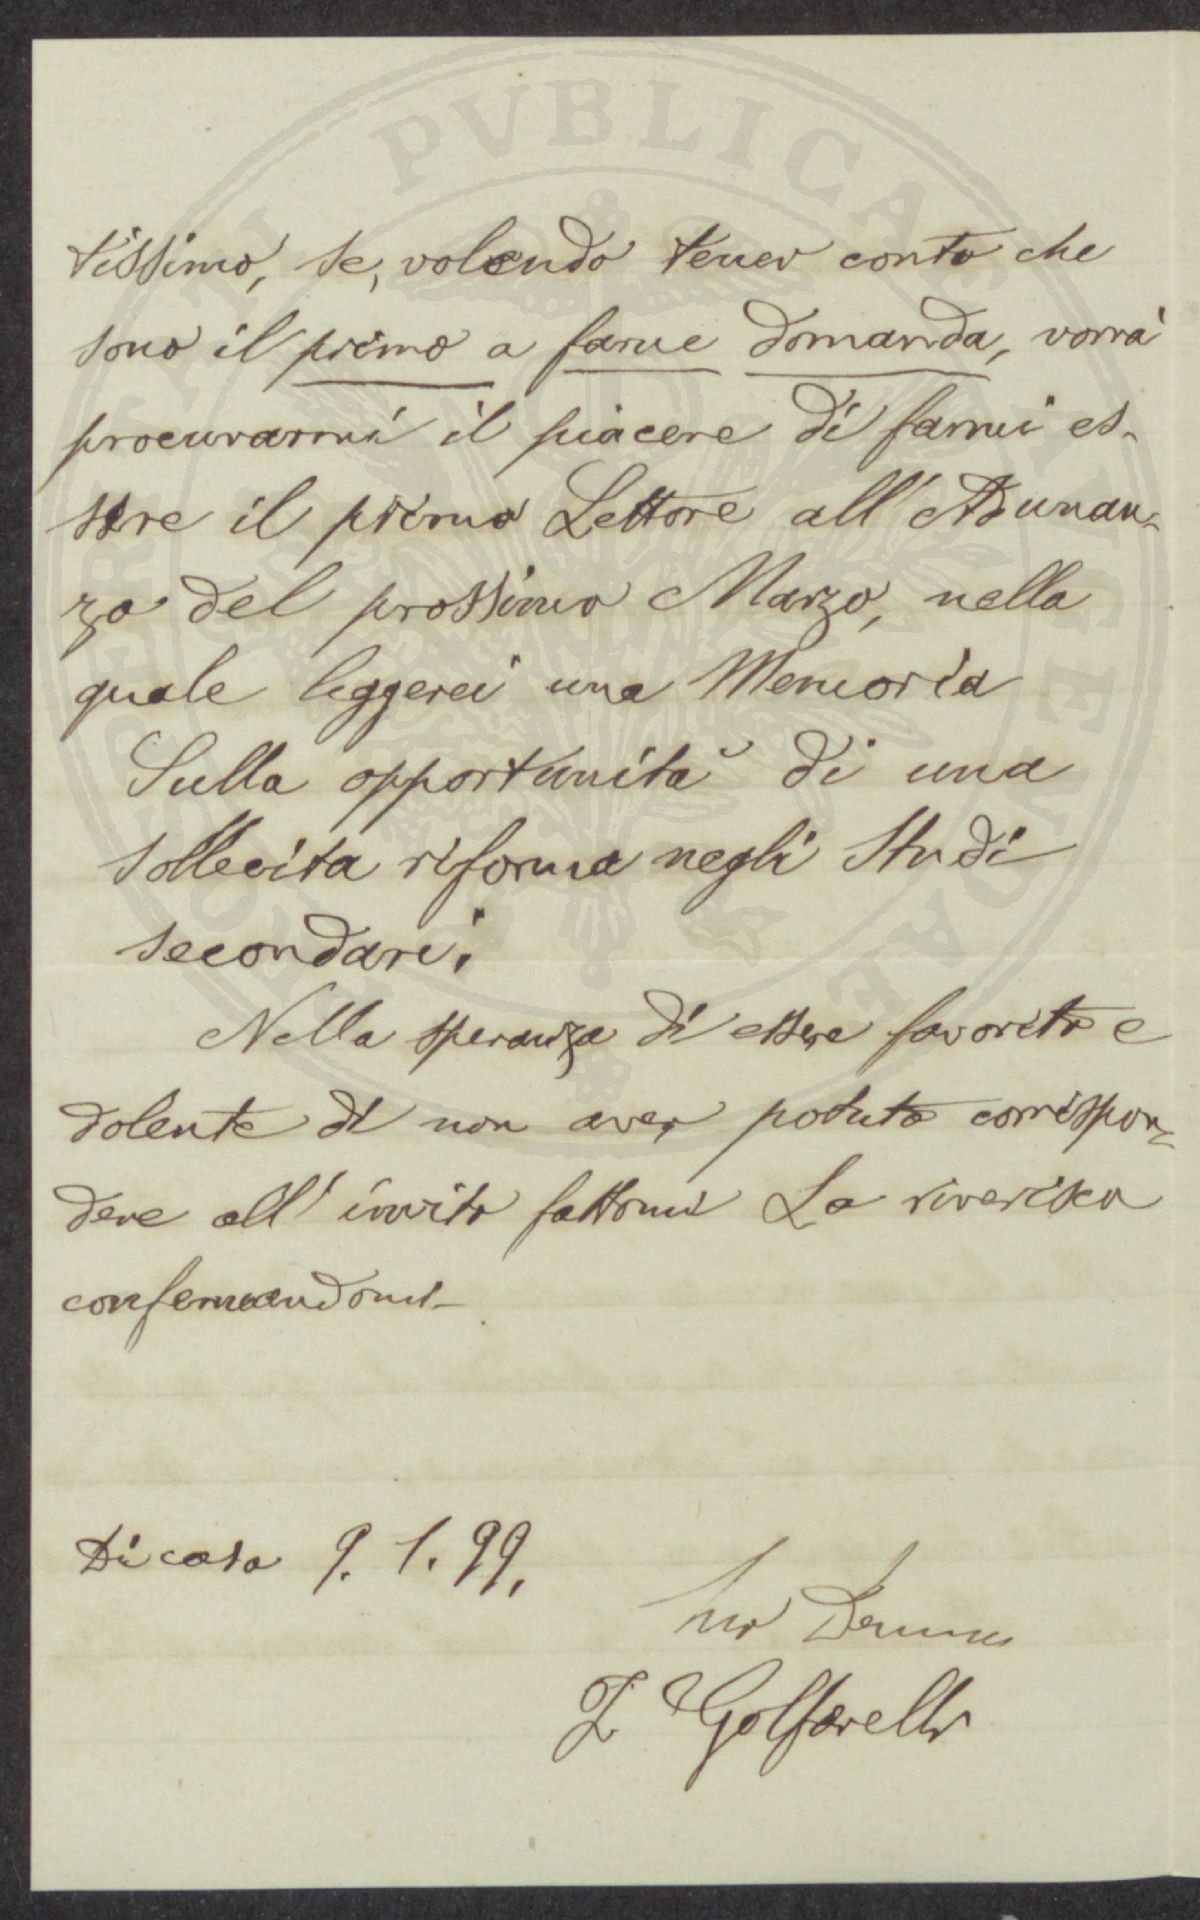 tissimo, se, volendo tener conto che
sono il primo a farne domanda, vorrà
procurarmi il piacere di farmi es-
sere il primo Lettore all'Adunan-
za del prossimo Marzo, nella
quale leggerei una Memoria
Sulla opportunità di una
sollecita riforma negli Studi
secondari.
Nella speranza di essere favorito e
dolente di non aver potuto corrispon-
dere all'invito fattomi La riverisco
confermandomi
Di casa 9. 1. 99.
Suo
Golfarelli
PVBLICAE